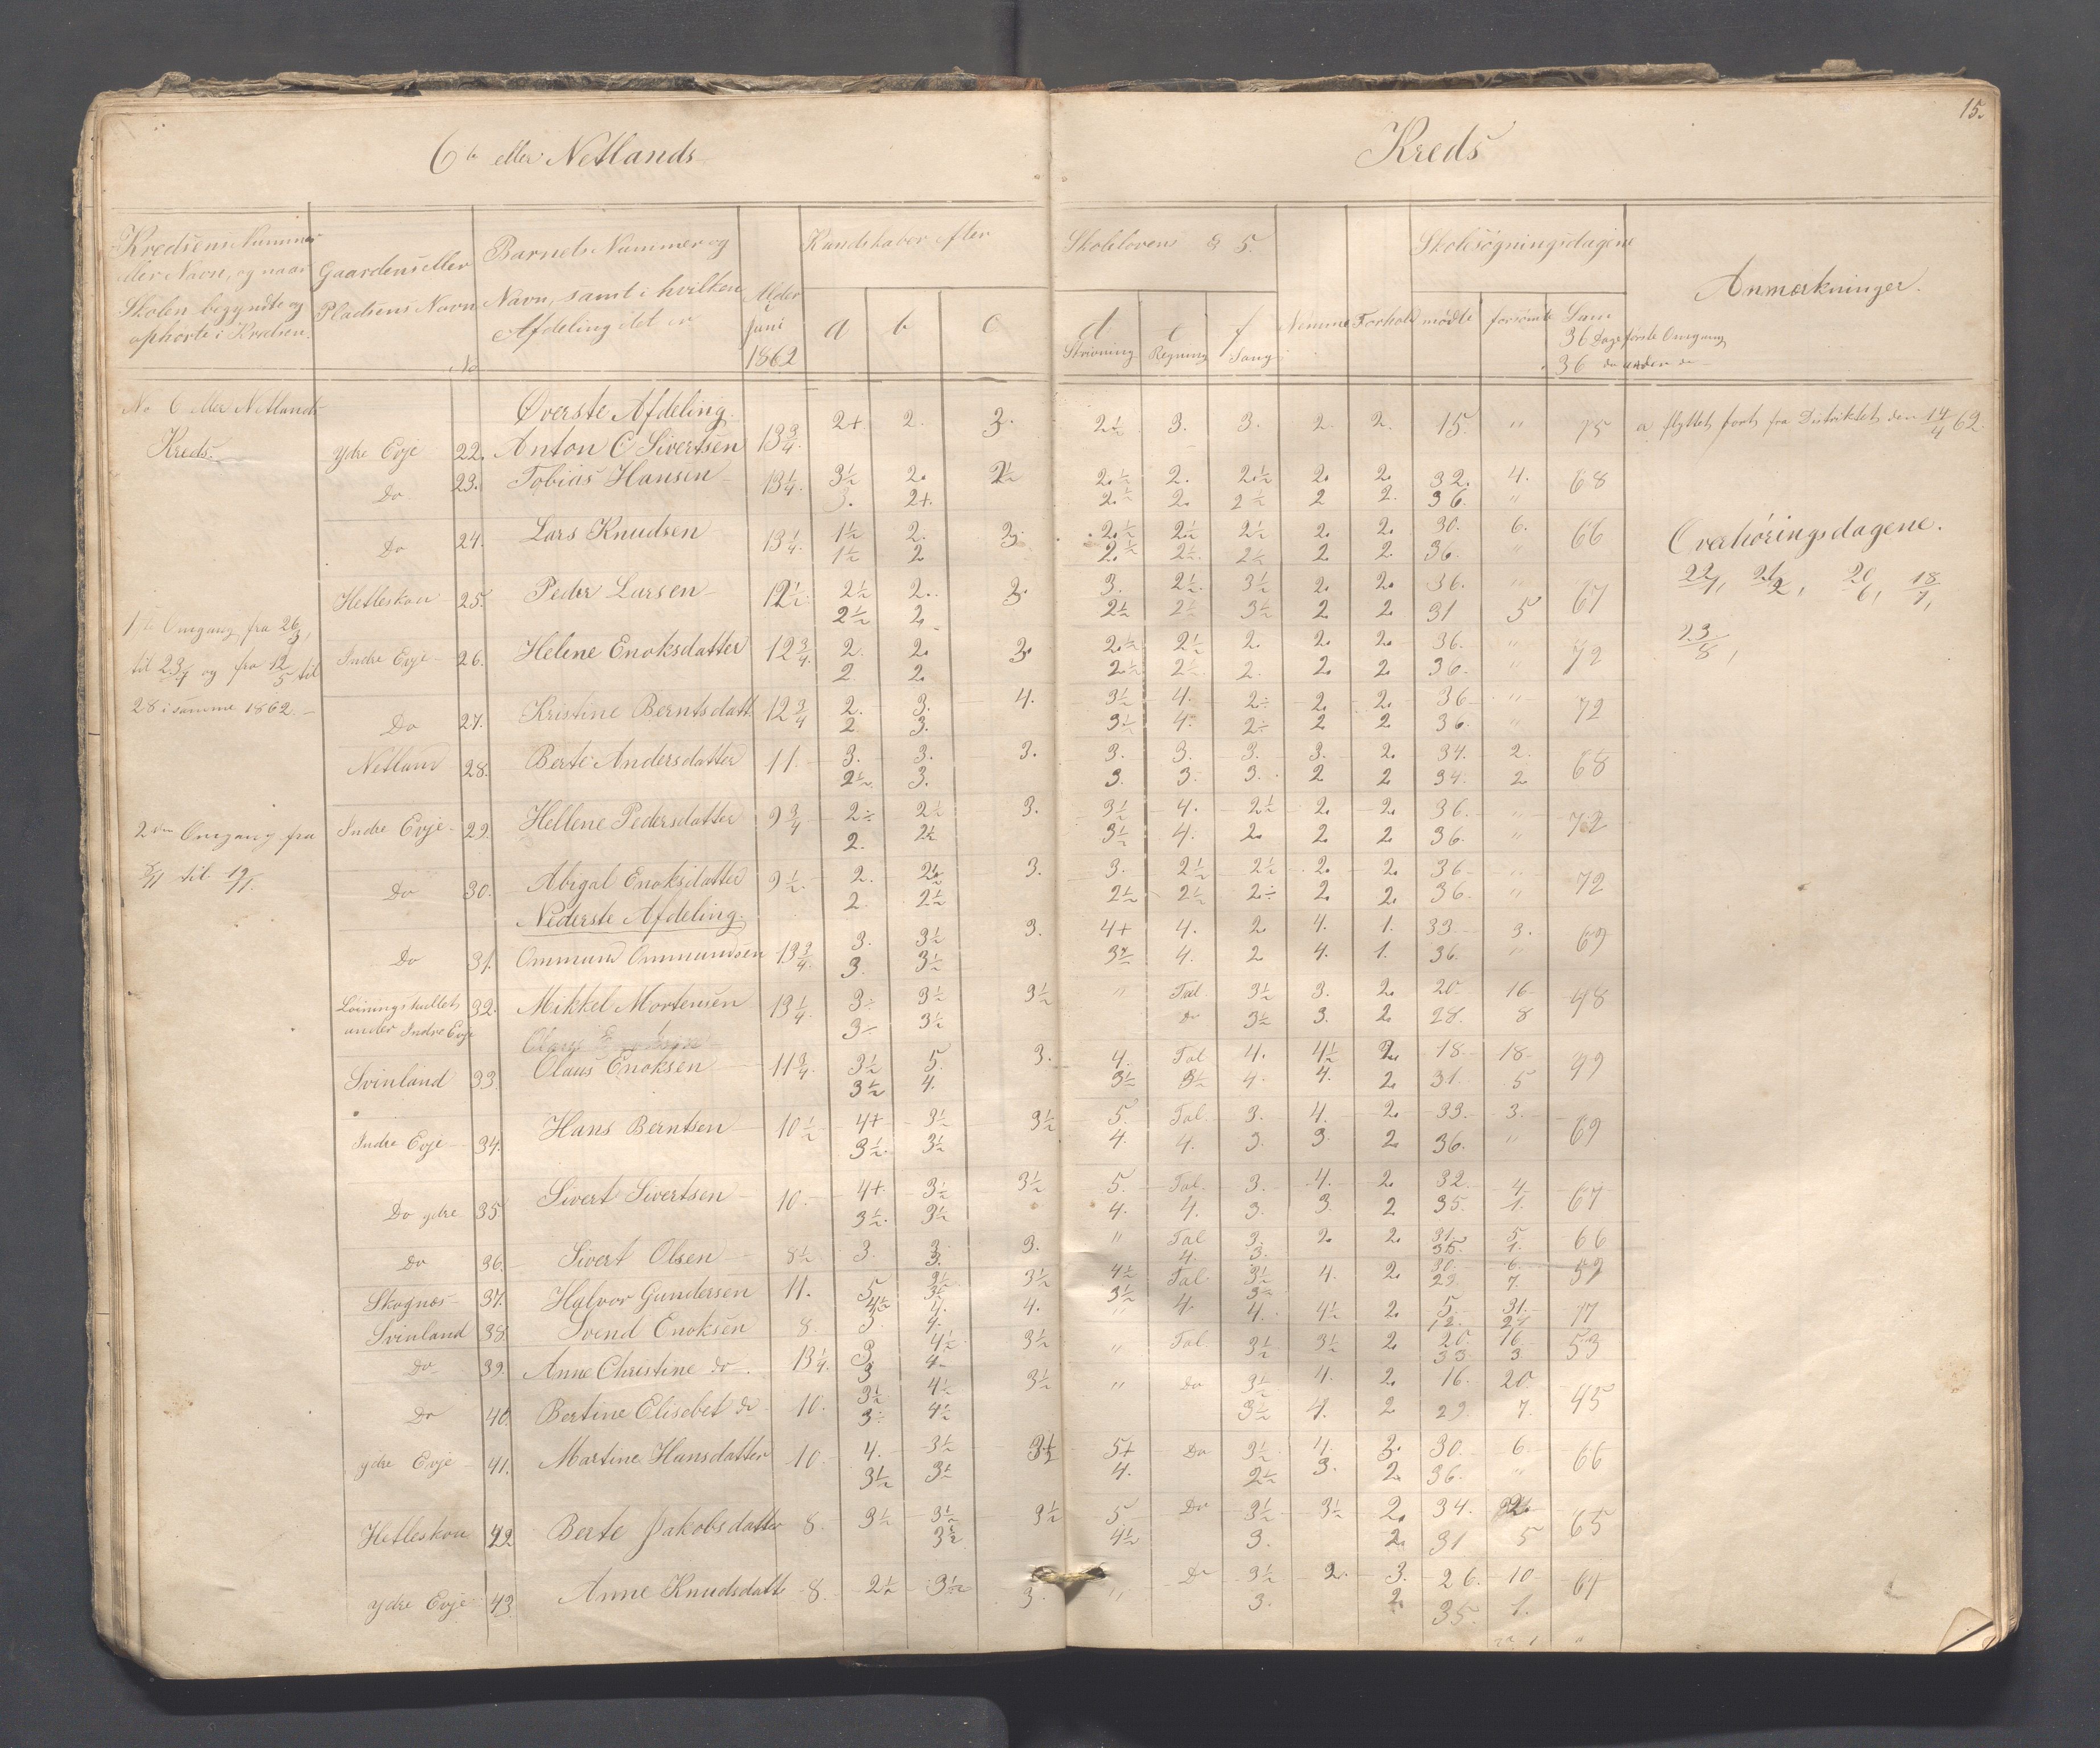 15.
6te eller Netlands Kreds
Kredsens Nummer eller Navn, og naar Skolen begyndte og ophørte i Kredsen.
Gaardens eller Pladsens Navn
No
Barnets Nummer og Navn, samt i hvilken Afdeling det er
Alder i Juni 1862
Kundskaber efter Skoleloven § 5.
a b c d Skrivning e Regning f Sang
Nemme Forhold
Skolesøgningsdagene
mødte forsømte Sum
36 Dage første Omgang
36 do anden do
Anmærkninger.
No 6 eller Netlands Kreds.
Øverste Afdeling.
Ydre Evje 22. Anton C Sivertsen 13 3/4. 2+. 2. 3. 2 1/2 3. 3. 2. 2. 15. " 15 a flyttet fort fra Distriktet den 14/4 62.
Do 23. Tobias Hansen 13 1/4. 3 1/2 2. 2 1/2 2. 1/2 2. 2. 1/2 2. 2. 32. 4. 68
3. 2+. 2. 1/2 2. 2 1/2 2 2. 36. "
Do 24. Lars Knudsen 13 1/4. 1 1/2 2. 3. 2. 1/2 2 1/2 2 1/2 2. 2. 30. 6. 66
1 1/2 2 2. 1/2 2 1/2 2 1/2 2 2. 36. "
Overhøringsdagene.
22/1, 21/2, 20/6, 18/7,
23/8,
Hetleskou 25. Peder Larsen 12 1/2. 2 1/2 2. 3. 3. 2 1/2 3 1/2 2. 2. 36. " 67
2 1/2 2. 2 1/2 2 1/2 3 1/2 2 2. 31 5
1ste Omgang fra 26/3, til 23/4 og fra 12/5 til 28 i samme 1862.
Indre Evje 26. Helene Enoksdatter 12 3/4. 2. 2. 3. 2. 1/2 2 1/2 2. 2. 2. 36. " 72
2 2. 2. 1/2 2 1/2 2. 2. 2. 36. "
Do 27. Kristine Berntsdatt. 12 3/4 2. 3. 4. 3 1/2 4. 2÷ 2. 2. 36 " 72
2. 3. 3 1/2 4. 2÷ 2 2 36. "
Netland 28. Berte Andersdatter 11. 3. 3. 3. 3. 3. 3. 3. 2. 34. 2. 68
2 1/2 3. 3. 3. 3. 2 2 34. 2
2den Omgang fra til 19/7.
Indre Evje 29. Hellene Pedersdatter 9 3/4 2÷ 2 1/2 3. 3 1/2 4. 2 1/2 2. 2. 36. " 72
2. 2 1/2 3 1/2 4. 2. 2 2 36. "
Do 30. Abigal Enoksdatter 9 1/2. 2. 2 1/2 3. 3. 2 1/2 2 1/2 2. 2. 36 " 72
2 2 1/2 2 1/2 2 1/2 2÷ 2 2. 36. "
Nederste Afdeling.
Do 31. Ommund Ommundsen 13 3/4. 3. 3 1/2 3. 4+ 4. 2 4. 1. 33. 3. 69
3. 3 1/2 3 1/2 4. 2 4. 1. 36. "
Løiningstullet under Indre Evje 32. Mikkel Mortensen 13 1/4. 3÷ 3 1/2 3 1/2 " Tal 3 1/2 3. 2. 20 16. 48
3÷ 3 1/2 Do 3 1/2 3. 2 28. 8
Svinland 33. Olaus Enoksen 11 3/4. 3 1/2 5. 3. 4. Tal 4. 4 1/2 2. 18. 18. 49
3 1/2 4. 3 1/2 3 1/2 4. 4. 2 31. 5
Indre Evje 34. Hans Berntsen 10 1/2 4+ 3 1/2 3 1/2 5. Tal. 3. 4. 2. 33. 3. 69
3 1/2. 3 1/2 4. 4. 3. 3. 2 36. "
Do ydre 35 Sivert Sivertsen 10. 4+. 3 1/2 3 1/2 5. Tal. 3. 4. 2. 32. 4. 67
3 1/2. 3 1/2 4. 4. 3. 3. 2 35. 1.
Do 36. Sivert Olsen 8 1/2 3. 3. 3. " Tal 3. 2. 2. 31. 5 66
3. 4. 3. 35. 1.
Skognæs 37. Halvor Gundersen 11. 5 3 1/2 3 1/2 4 1/2 Tal 3 1/2 4. 2. 30. 6. 59
4 1/2 3 1/2 3 1/2 4. 3 1/2 23. 7.
Svinland 38. Svend Enoksen 8. 5 4. 4. " 4. 4 1/2 2. 5. 31. 17
4. 12.
Do 39. Anne Christine do. 13 1/4. 3 4 1/2 3 1/2 " Tal. 3 1/2 3 1/2 2. 20. 16. 53
3 4. 33. 3.
Do 40. Bertine Elisebet do. 10. 3 1/2 4 1/2 3 1/2 " Do 3 1/2 4. 2. 16. 20. 45
3÷ 4 1/2 3 1/2 4. 2 29. 7.
Ydre Evje 41. Martine Hansdatter 10. 4. 3 1/2 3 1/2 5+ Do 3 1/2. 4. 2. 30. 6. 66
3 1/2 3 1/2 4. 2 1/2 3. 2. 36. "
Hetleskou 42 Berte Jakobsdatter 8. 3 1/2 3 1/2 3 1/2 5 Do 3 1/2 3 1/2 2. 34. 2. 65
3 1/2 4 1/2 3. 2. 31 5
Ydre Evje 43. Anne Knudsdatt 8. 2 1/2 3 1/2 3. " Do 3 1/2 2. 3. 26. 10. 61
3. 2. 35. 1.